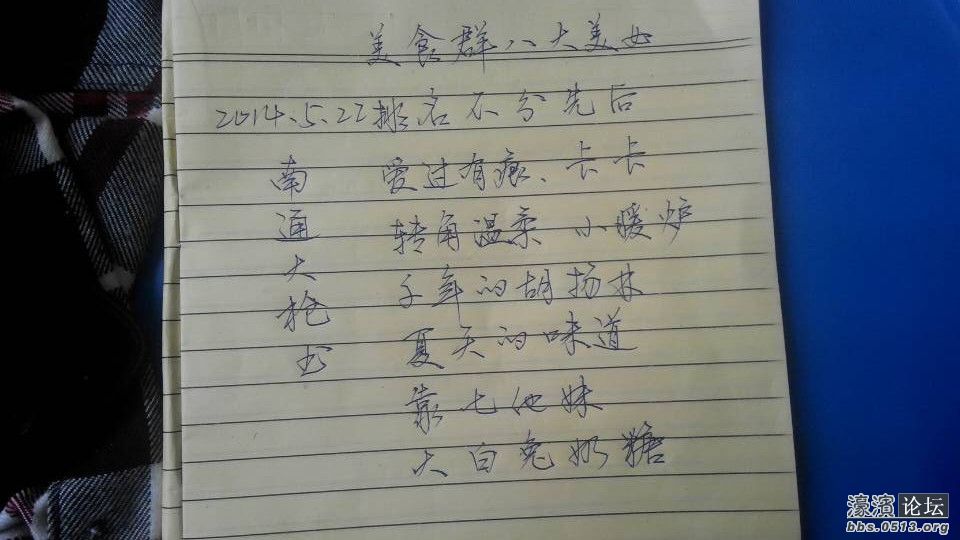 美食群八大美女
2014.5.22排名不分先后
爱过有痕、卡卡
转角温柔 小暖炉
千年的胡扬林
夏天的味道
靠七他妹
大白兔奶糖
南通大枪书
濠滨论坛
bbs.0513.org